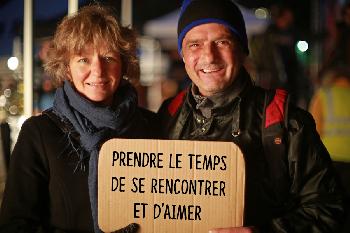 PRENDRE LE TEMPS
DE SE RENCONTRER
ET D'AIMER